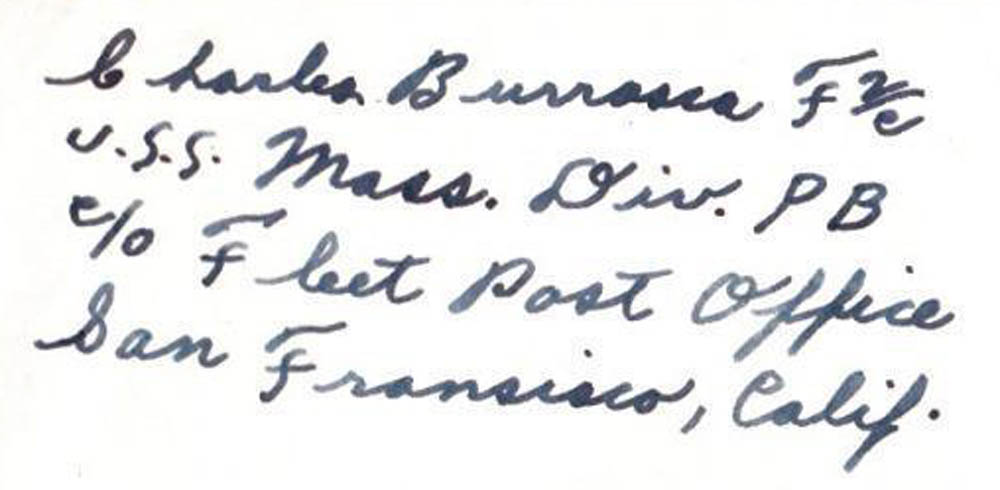 Charles Burrasca F 2/c
U.S.S. Mass. Div. PB
c/o Fleet Post Office
San Fransisco, Calif.